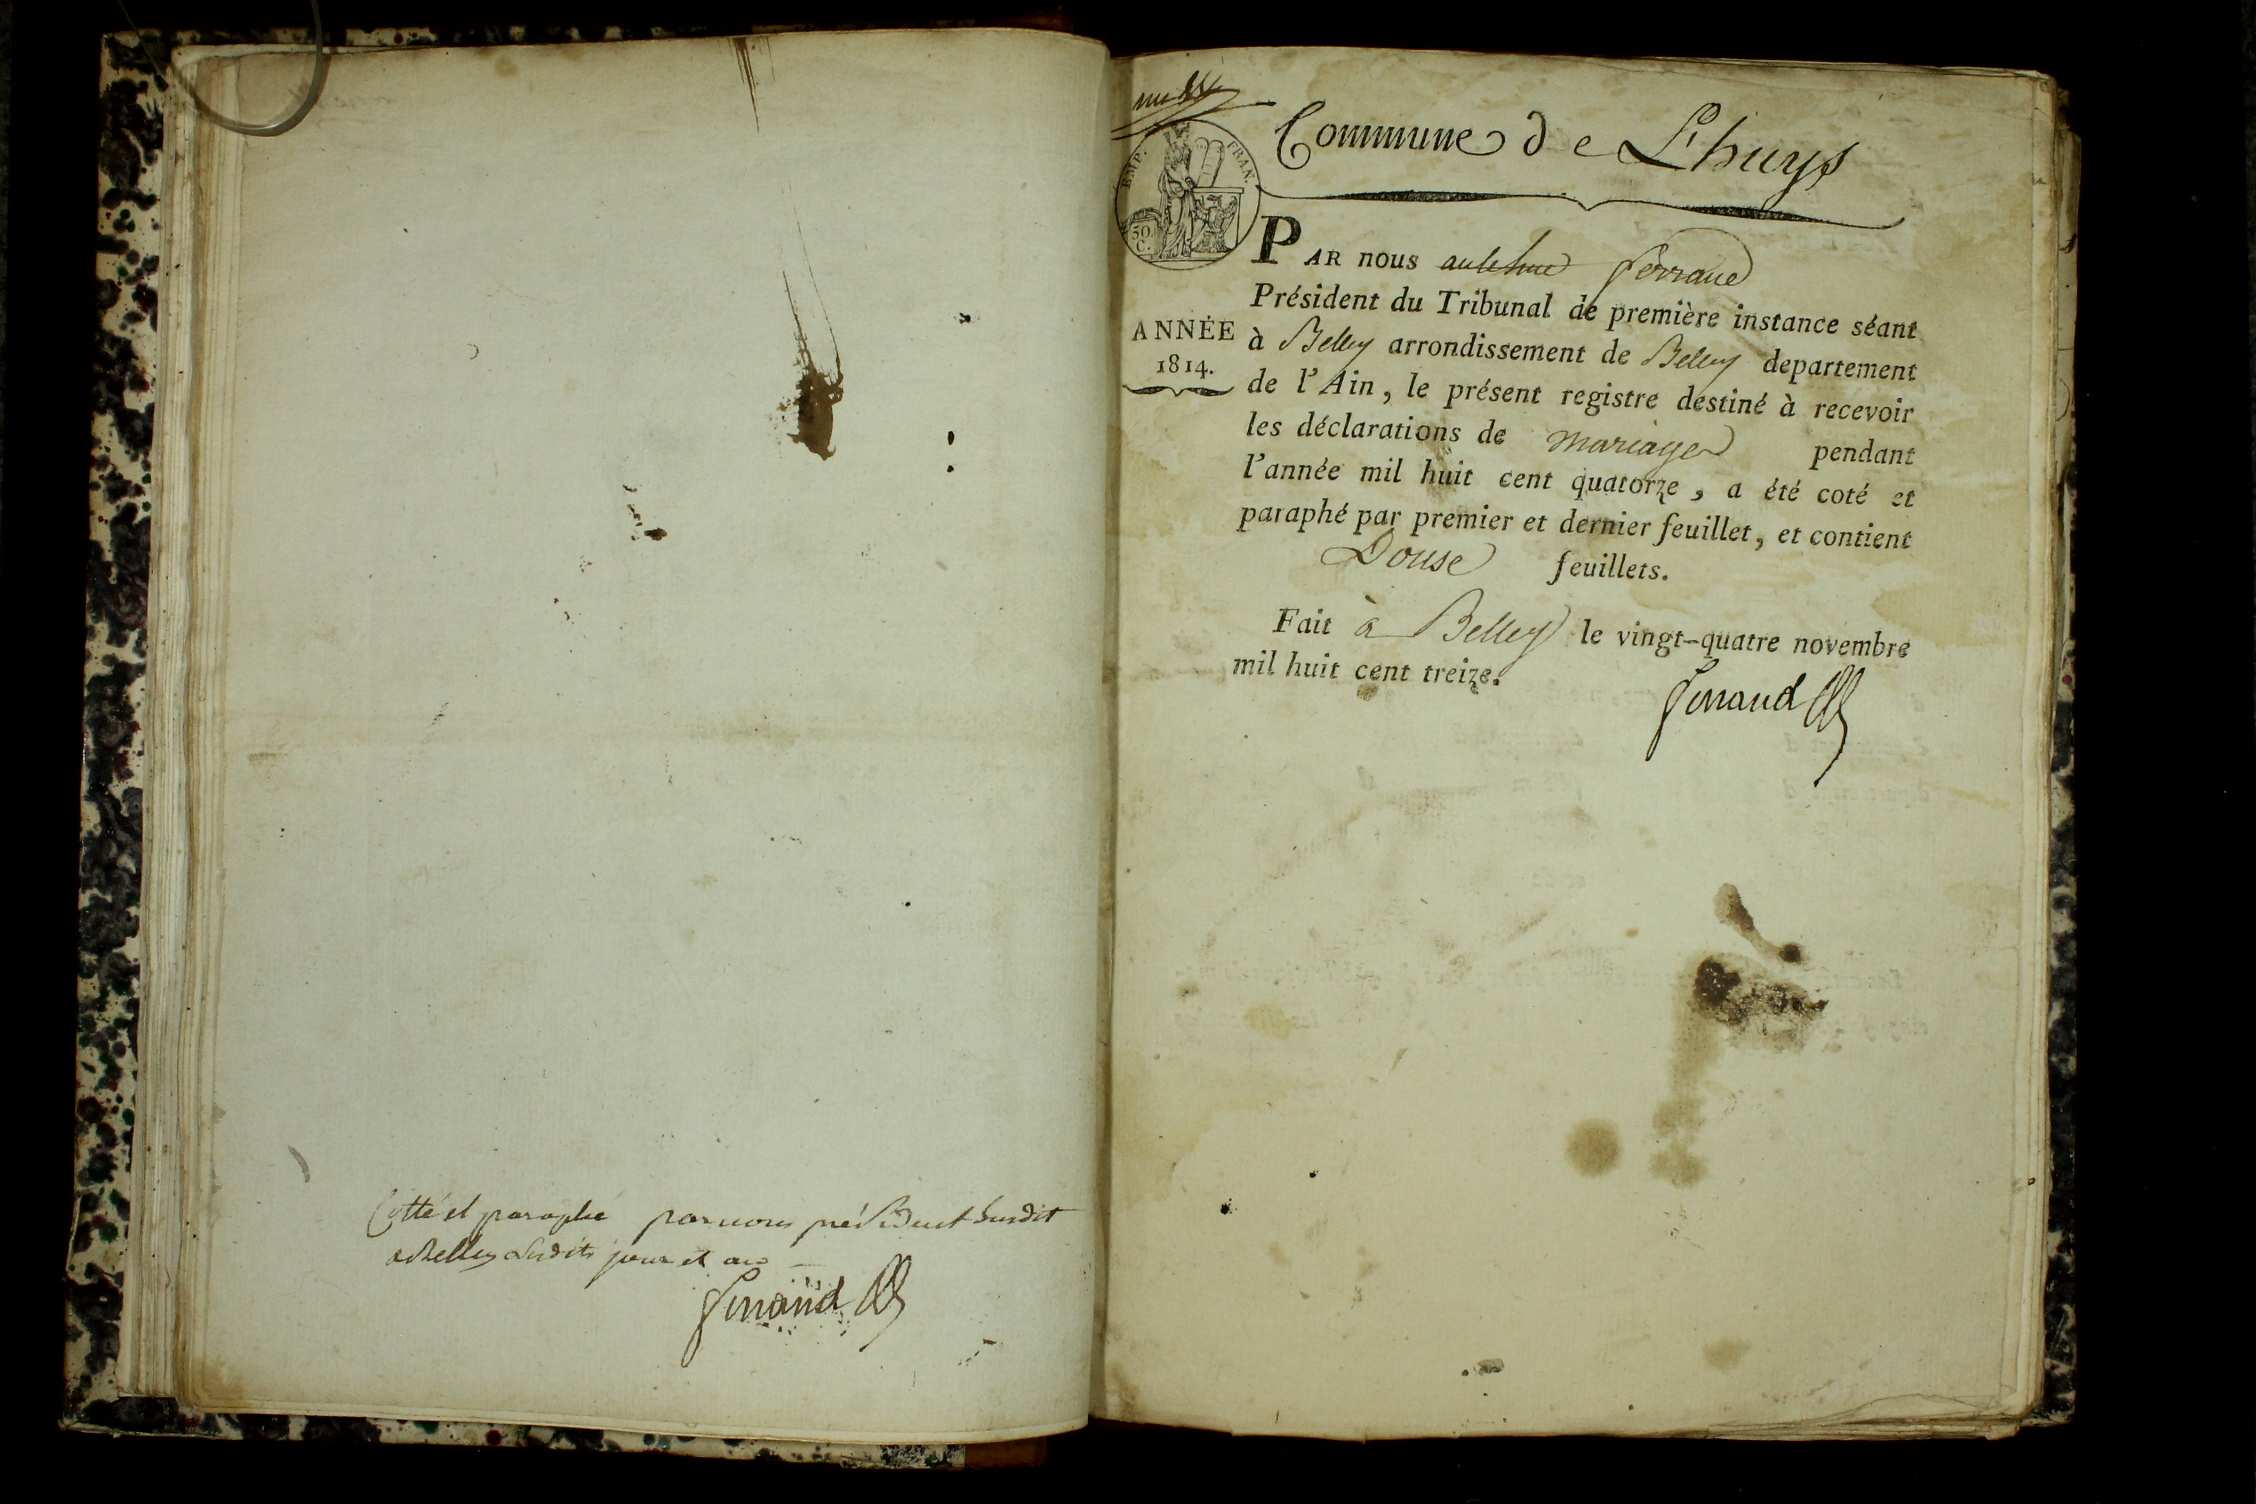 Cotté et paraphé par nous président susdit
à Belley susdits jour et an
Ferrand
Commune de Lhuys
EMP. FRAN.
50.
C.
PAR nous anthelme Ferrand
Président du Tribunal de première instance séant
ANNÉE
1814.
à Belley arrondissement de Belley departement
de l'Ain, le présent registre destiné à recevoir
les déclarations de mariages pendant
l'année mil huit cent quatorze, a été coté et
paraphé par premier et dernier feuillet, et contient
Douse feuillets.
Fait à Belley le vingt-quatre novembre
mil huit cent treize.
Ferrand